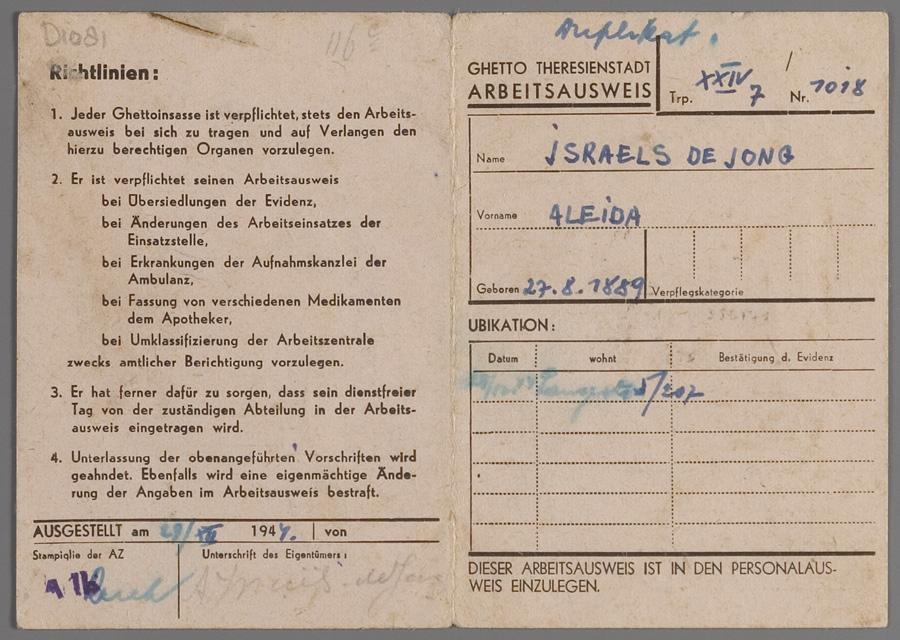 D1081
116 c
Richtlinien:
1. Jeder Ghettoinsasse ist verpflichtet, stets den Arbeits-
ausweis bei sich zu tragen und auf Verlangen den
hierzu berechtigten Organen vorzulegen.
2. Er ist verpflichtet seinen Arbeitsausweis
bei Übersiedlungen der Evidenz,
bei Änderungen des Arbeitseinsatzes der
Einsatzstelle,
bei Erkrankungen der Aufnahmskanzlei der
Ambulanz,
bei Fassung von verschiedenen Medikamenten
dem Apotheker,
bei Umklassifizierung der Arbeitszentrale
zwecks amtlicher Berichtigung vorzulegen.
3. Er hat ferner dafür zu sorgen, dass sein dienstfreier
Tag von der zuständigen Abteilung in der Arbeits-
ausweis eingetragen wird.
4. Unterlassung der obenangeführten Vorschriften wird
geahndet. Ebenfalls wird eine eigenmächtige Ände-
rung der Angaben im Arbeitsausweis bestraft.
AUSGESTELLT am 29/XII 1944. von
Stampiglie der AZ Unterschrift des Eigentümers:
A. Israels-de Jong
Duplikat.
GHETTO THERESIENSTADT
ARBEITSAUSWEIS
Trp. XXIV/7 Nr. 1018
Name ISRAELS DE JONG
Vorname ALEIDA
Geboren 27.8.1889 Verpflegskategorie
UBIKATION:
Datum wohnt Bestätigung d. Evidenz
5/207
DIESER ARBEITSAUSWEIS IST IN DEN PERSONALAUS-
WEIS EINZULEGEN.